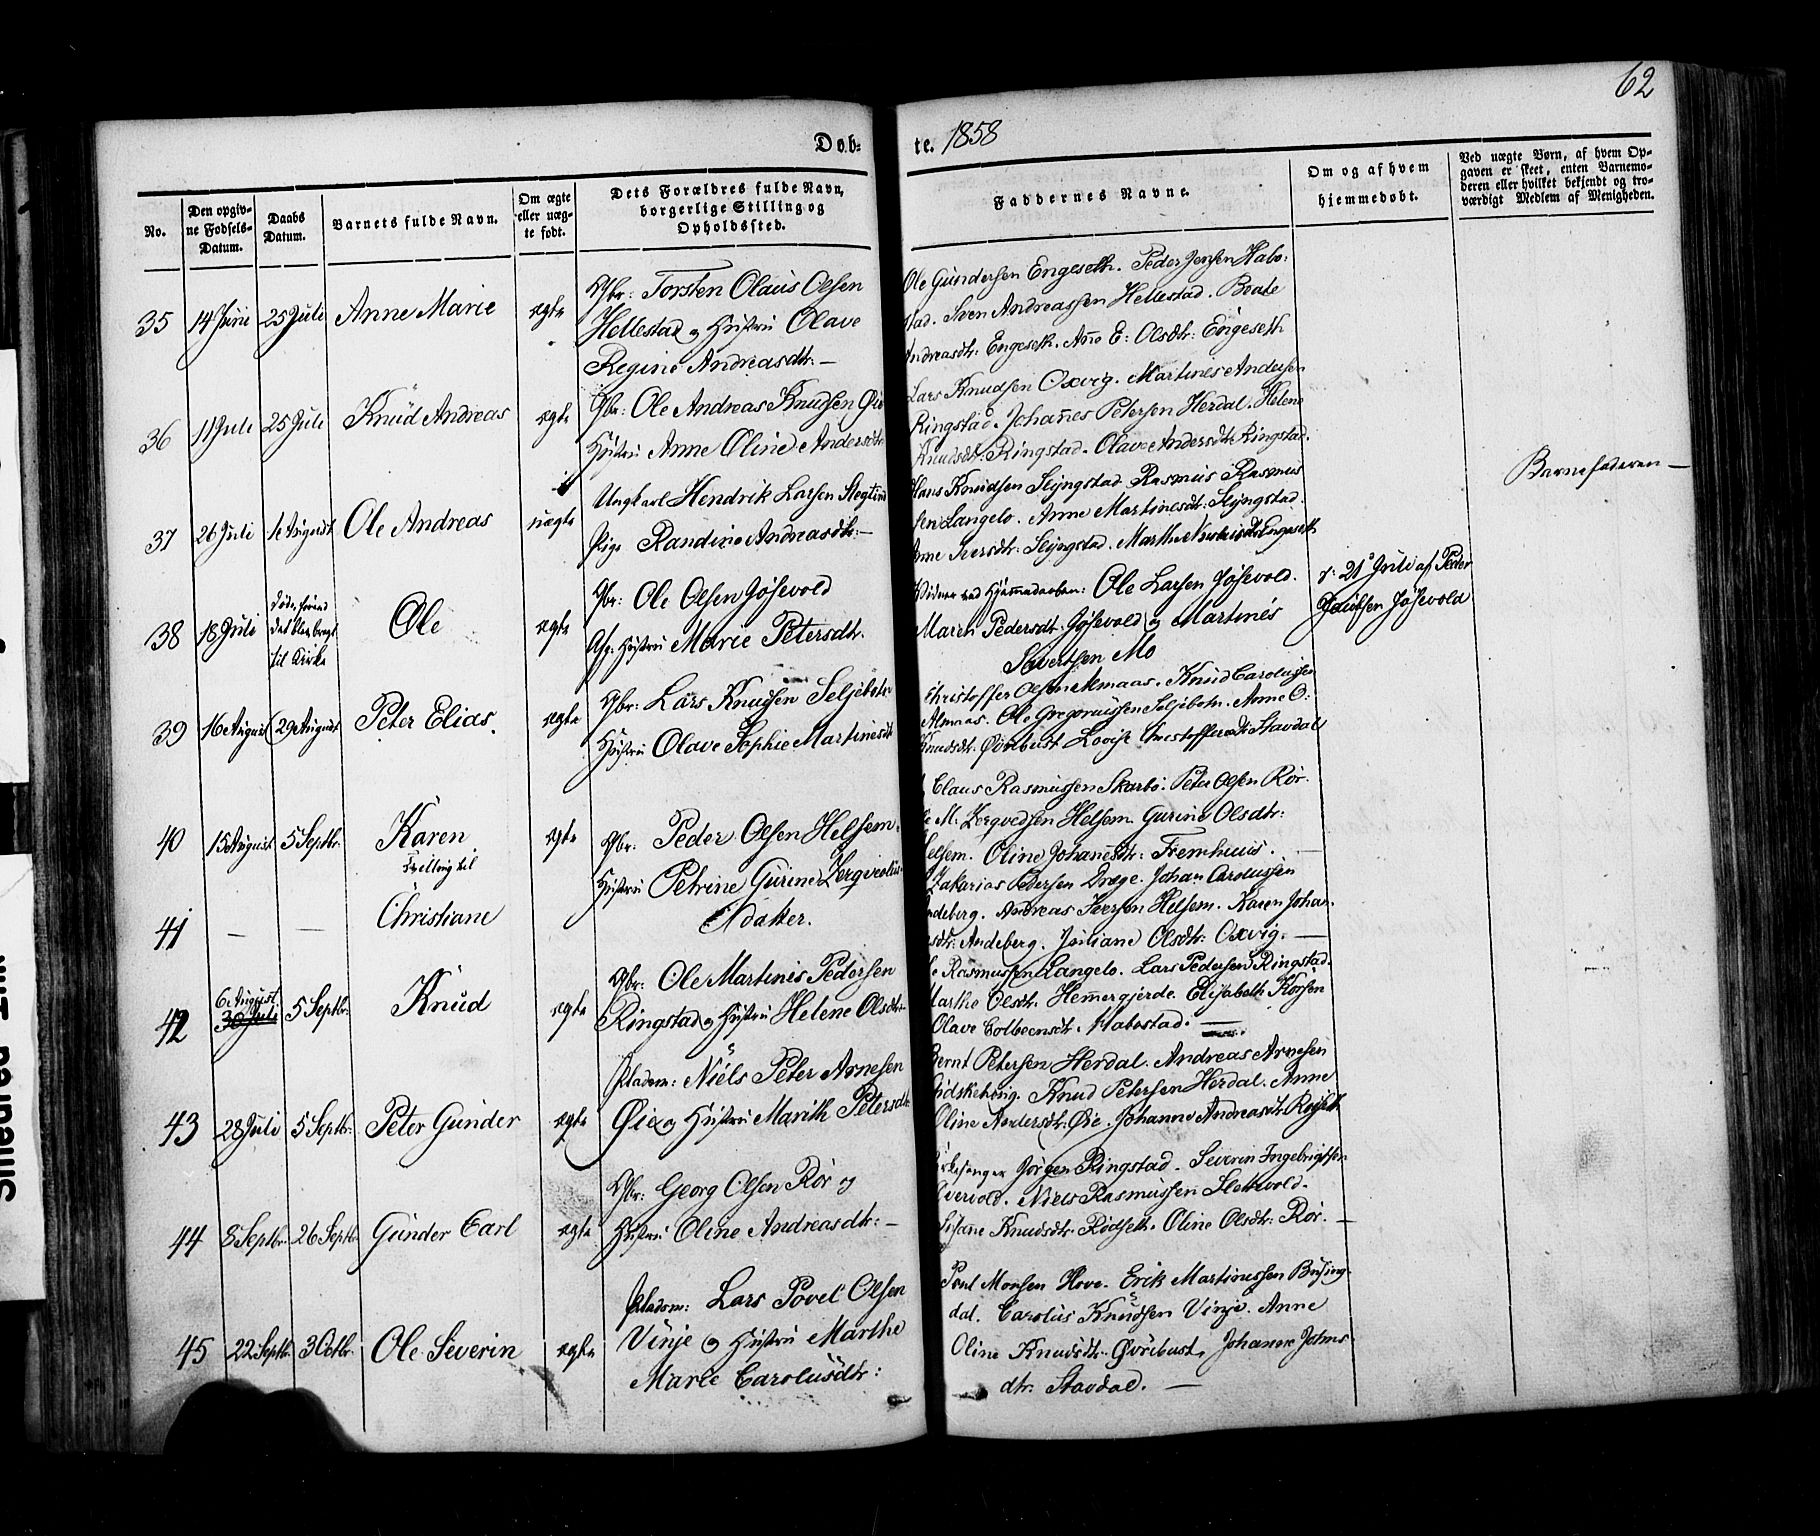 62
Døb-
te. 1858
No.
Den opgiv-
ne Fødsels-
Datum.
Daabs
Datum.
Barnets fulde Navn.
Om ægte
eller uæg-
te født.
Dets Forældres fulde Navn,
borgerlige Stilling og
Opholdssted.
Faddernes Navne.
Om og af hvem
hjemmedøbt.
Ved uægte Børn, af hvem Op-
gaven er skeet, enten Barnemo-
deren eller hvilket bekjendt og tro-
værdigt Medlem af Menigheden.
35 14 Juni 25 Juli Anne Marie ægte
Gbr: Torsten Olaus Olsen
Hellestad og Hustru Olave
Regine Andreasdtr: —
Ole Gundersen Engeseth. Peder Jensen Habo-
stad. Sven Andreassen Hellestad. Beate
Andreasdtr: Engeseth. Ane E: Olsdtr: Engeseth
36 11 Juli 25 Juli Knud Andreas ægte
Gbr: Ole Andreas Knudsen Øie
Hustru Anne Oline Andersdtr
Lars Knudsen Oxvig. Martines Andersen
Ringstad. Johanes Petersen Herdal. Helene
Knudsdt: Ringstad. Olave Andersdtr Ringstad.
37 26 Juli 1 August Ole Andreas uægte
Ungkarl Hendrik Larsen
Pige Randine Andreasdtr: —
Hans Knudsen Slyngstad Rasmus Rasmus
sen Langelo. Anne Martinesdt: Slyngstad.
Anne Iversdtr: Slyngstad. Marthe Engeseth
Barnefaderen —
38 18 Juli
Døde, førend
det blev bragt
til Kirke
Ole ægte
Gbr: Ole Olsen Jøsevold
og Hustru Marie Petersdtr.
Vidner ved Hjemmedaaben: Ole Larsen Jøsevold.
Maren Pedersdt: Jøsevold og Martines
Sivertsen Mo
d: 21 Juli af Peder
Jøsevold
39 16 August 29 August Peter Elias. ægte
Gbr: Lars Knudsen Seljebotn
Hustru Olave Sophie Martinesdt
Christoffer Olsen Almaas. Knud Carolussen
Almaas. Ole Gregoriussen Seljebotn. Anne O:
Knudsdt. Øvrebust Lovise Stavdal
40 15 August 5 Septbr. Karen
Tvilling til
ægte
Gbr: Peder Olsen Helsem.
Hustru Petrine Gurine
Claus Rasmussen Skarbø. Peter Olsen Rør.
M: Helsem. Gurine Olsdtr:
Helsem. Oline Johanesdtr: Fremhuus. —
41 — — Christiane
Datter.
Zakarias Pedersen Drege. Johan Carolussen
Andeberg. Andreas Iversen Helsem. Karen Johan-
sdt: Andeberg. Juliane Olsdtr: Oxvig. —
42 6 August
30 Juli
5 Septbr: Knud ægte
Gbr: Ole Martines Pedersen
Ringstad og Hustru Helene Olsdtr
Rasmussen Langelo. Lars Pedersen Ringstad.
Marthe Olsdt. Hemmergjerde. Elisabeth Korsen
Olave Colbeensdt. Habostad. —
43 28 Juli 5 Septbr: Peter Gunder ægte
Pladsm: Niels Peter Arnesen
Øie og Hustru Marith Petersdt
Bernt Petersen Herdal. Andreas Arnesen
Gidskehoug. Knud Petersen Herdal. Anne
Oline Andersdt: Øie. Johanne Andreasdt.
44 8 Septbr. 26 Septbr. Gunder Carl ægte
Gbr: Georg Olsen Rør og
Hustru Oline Andreasdtr: —
Kirkesanger Jørgen Ringstad. Severin Ingebrigtsen
Overvold. Niels Rasmussen Slettevold.
Susane Knudsdt. Rødseth. Oline Olsdt: Rør. —
45 22 Septbr. 3 Octbr. Ole Severin ægte
Pladsm: Lars Povel Olsen
Vinje og Hustru Marthe
Marie Carolusdtr:
Poul Monsen Hove. Erik Martinussen Busing-
dal. Carolus Knudsen Vinje. Anne
Oline Knudsdtr. Øvrebust. Johanne Johns
dtr. Stavdal. —